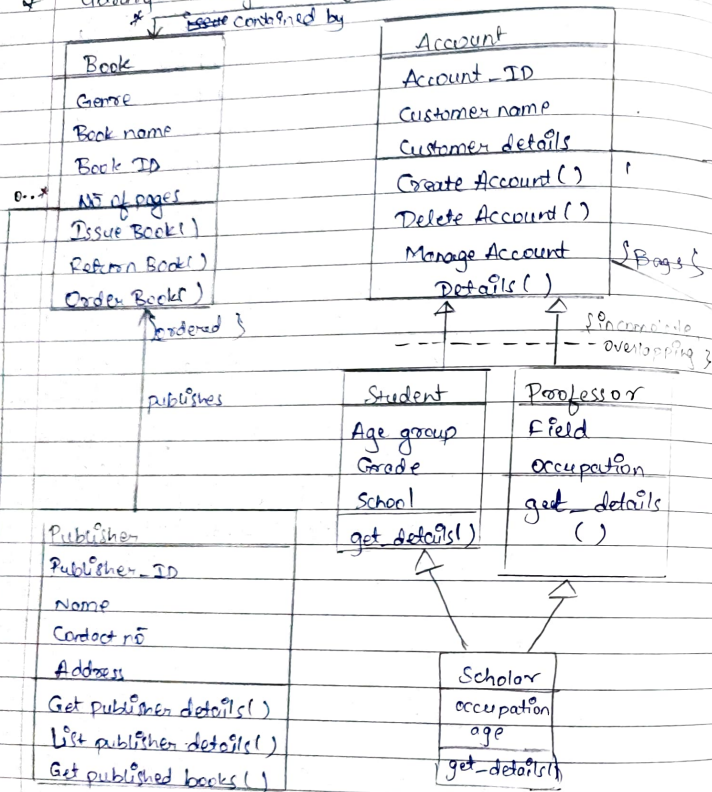 * contained by
Book
Genre
Book name
Book ID
0..*
Nō of pages
Issue Book()
Return Book()
Order Books()
{ordered}
publishes
Account
Account_ID
Customer name
Customer details
Create Account()
Delete Account()
Manage Account
Details()
{Bags}
overlapping}
Student
Age group
Grade
School
get_details()
Professor
Field
occupation
get_details
()
Publisher
Publisher_ID
Name
Contact nō
Address
Get publisher details()
List publisher details()
Get published books()
Scholar
occupation
age
get_details()